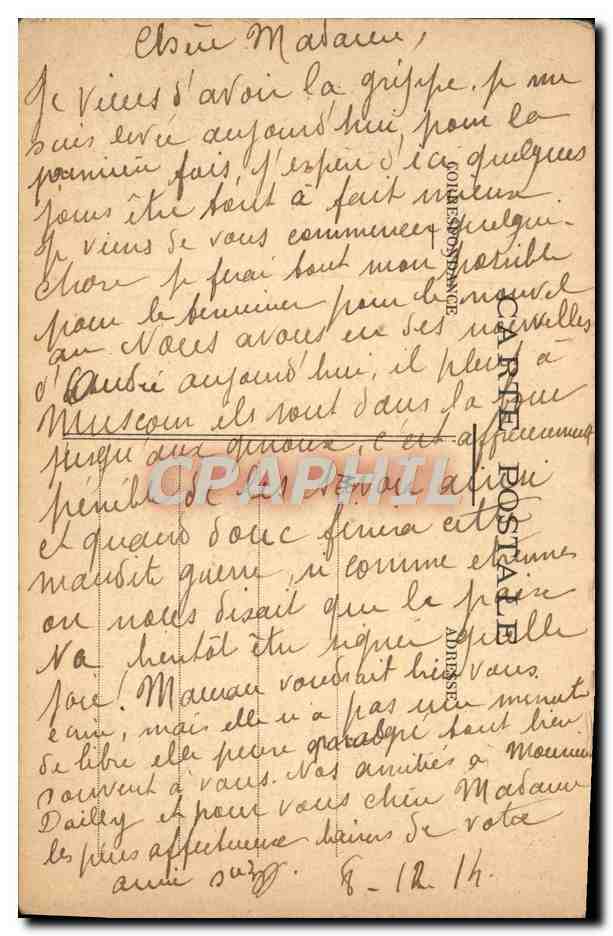 Chère Madame,
Je viens d'avoir la grippe. je me
suis levée aujourd'hui pour la
première fois, j'espère d'ici quelques
jours être tout à fait mieux
Je viens de vous commencer quelque
chose je ferai tout mon possible
pour le terminer pour le nouvel
an Nous avons eu des nouvelles
d'André aujourd'hui, il pleut à
ils sont dans la boue
jusqu'aux genoux, c'est affreusement
pénible de les savoir ainsi
et quand donc finira cette
maudite guerre, si comme etrennes
on nous disait que la paix
va bientôt être signée quelle
joie! Maman voudrait bien vous
ecrire, mais elle n'a pas une minute
de libre elle pense malgré tout bien
souvent à vous. Nos amitiés à Monsieur
Dailly et pour vous chère Madame
les plus affectueux baisers de votre
amie 8-12-14.
CORRESPONDANCE
CARTE POSTALE
ADRESSE
CPAPHIL